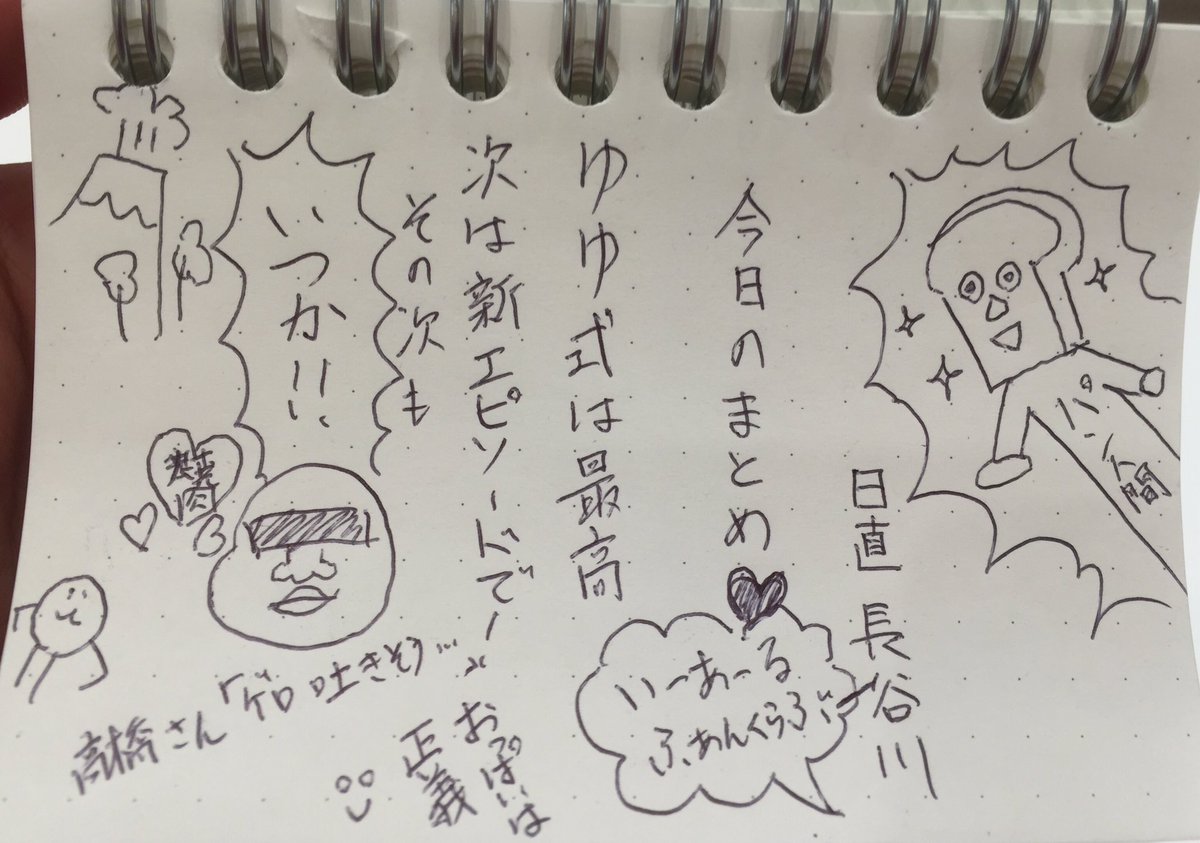 パン人間
日直 長谷川
今日のまとめ
いーあーる
ふぁんくらぶ
ゆゆ式は最高
次は新エピソードでー
おっぱいは
正義
その次も
いつか!!
高橋さん「ゲロ吐きそう…